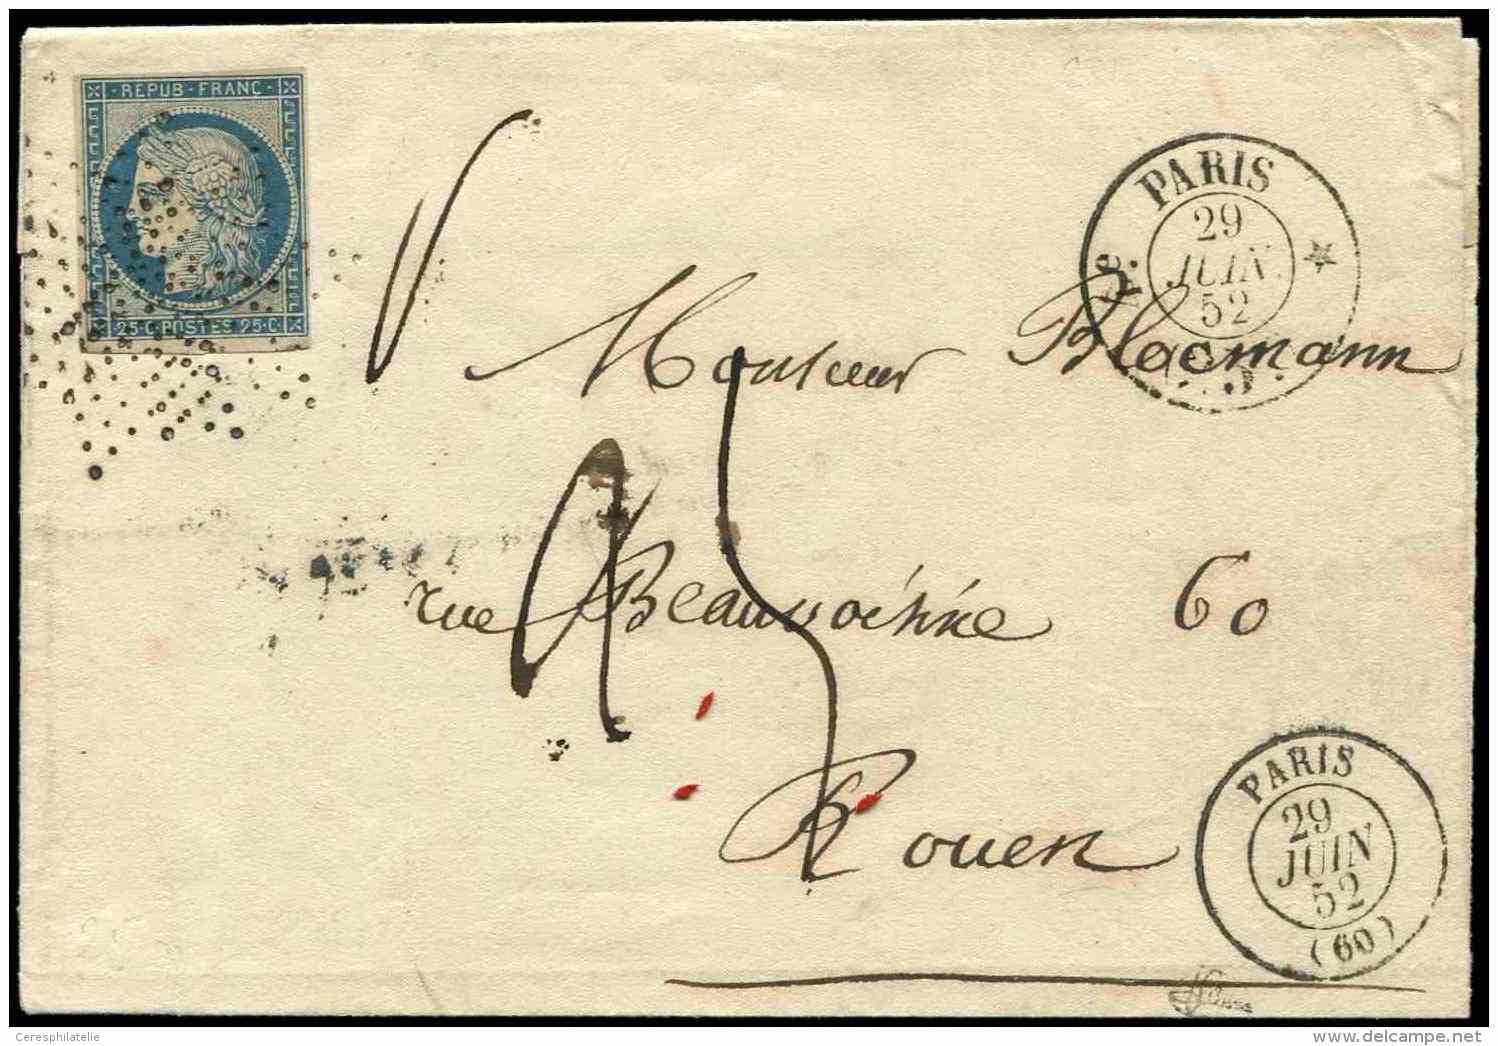 REPUB-FRANC
25·C·POSTES·25·C
PARIS
29
JUIN
52
Monsieur Blocmann
25
rue Beauvoisine 60
Rouen
PARIS
29
JUIN
52
(60)
Ceresphilatelie
www.delcampe.net